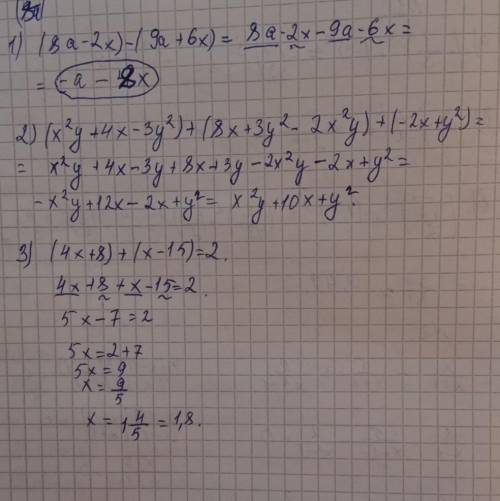 1) (8a-2x)-(9a+6x)= 8a-2x-9a-6x=
= -a-8x
2) (x²y+4x-3y²)+(8x+3y²-2x²y)+(-2x+y²)=
= x²y+4x-3y+8x+3y-2x²y-2x+y²=
-x²y+12x-2x+y²= x²y+10x+y².
3) (4x+8)+(x-15)=2.
4x+8+x-15=2.
5x-7=2
5x=2+7
5x=9
x=9/5
x=1 4/5=1,8.